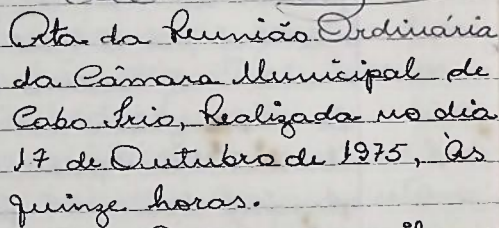 Ata da Reunião Ordinária
da Câmara Municipal de
Cabo Frio, Realizada no dia
17 de Outubro de 1975, às
quinze horas.